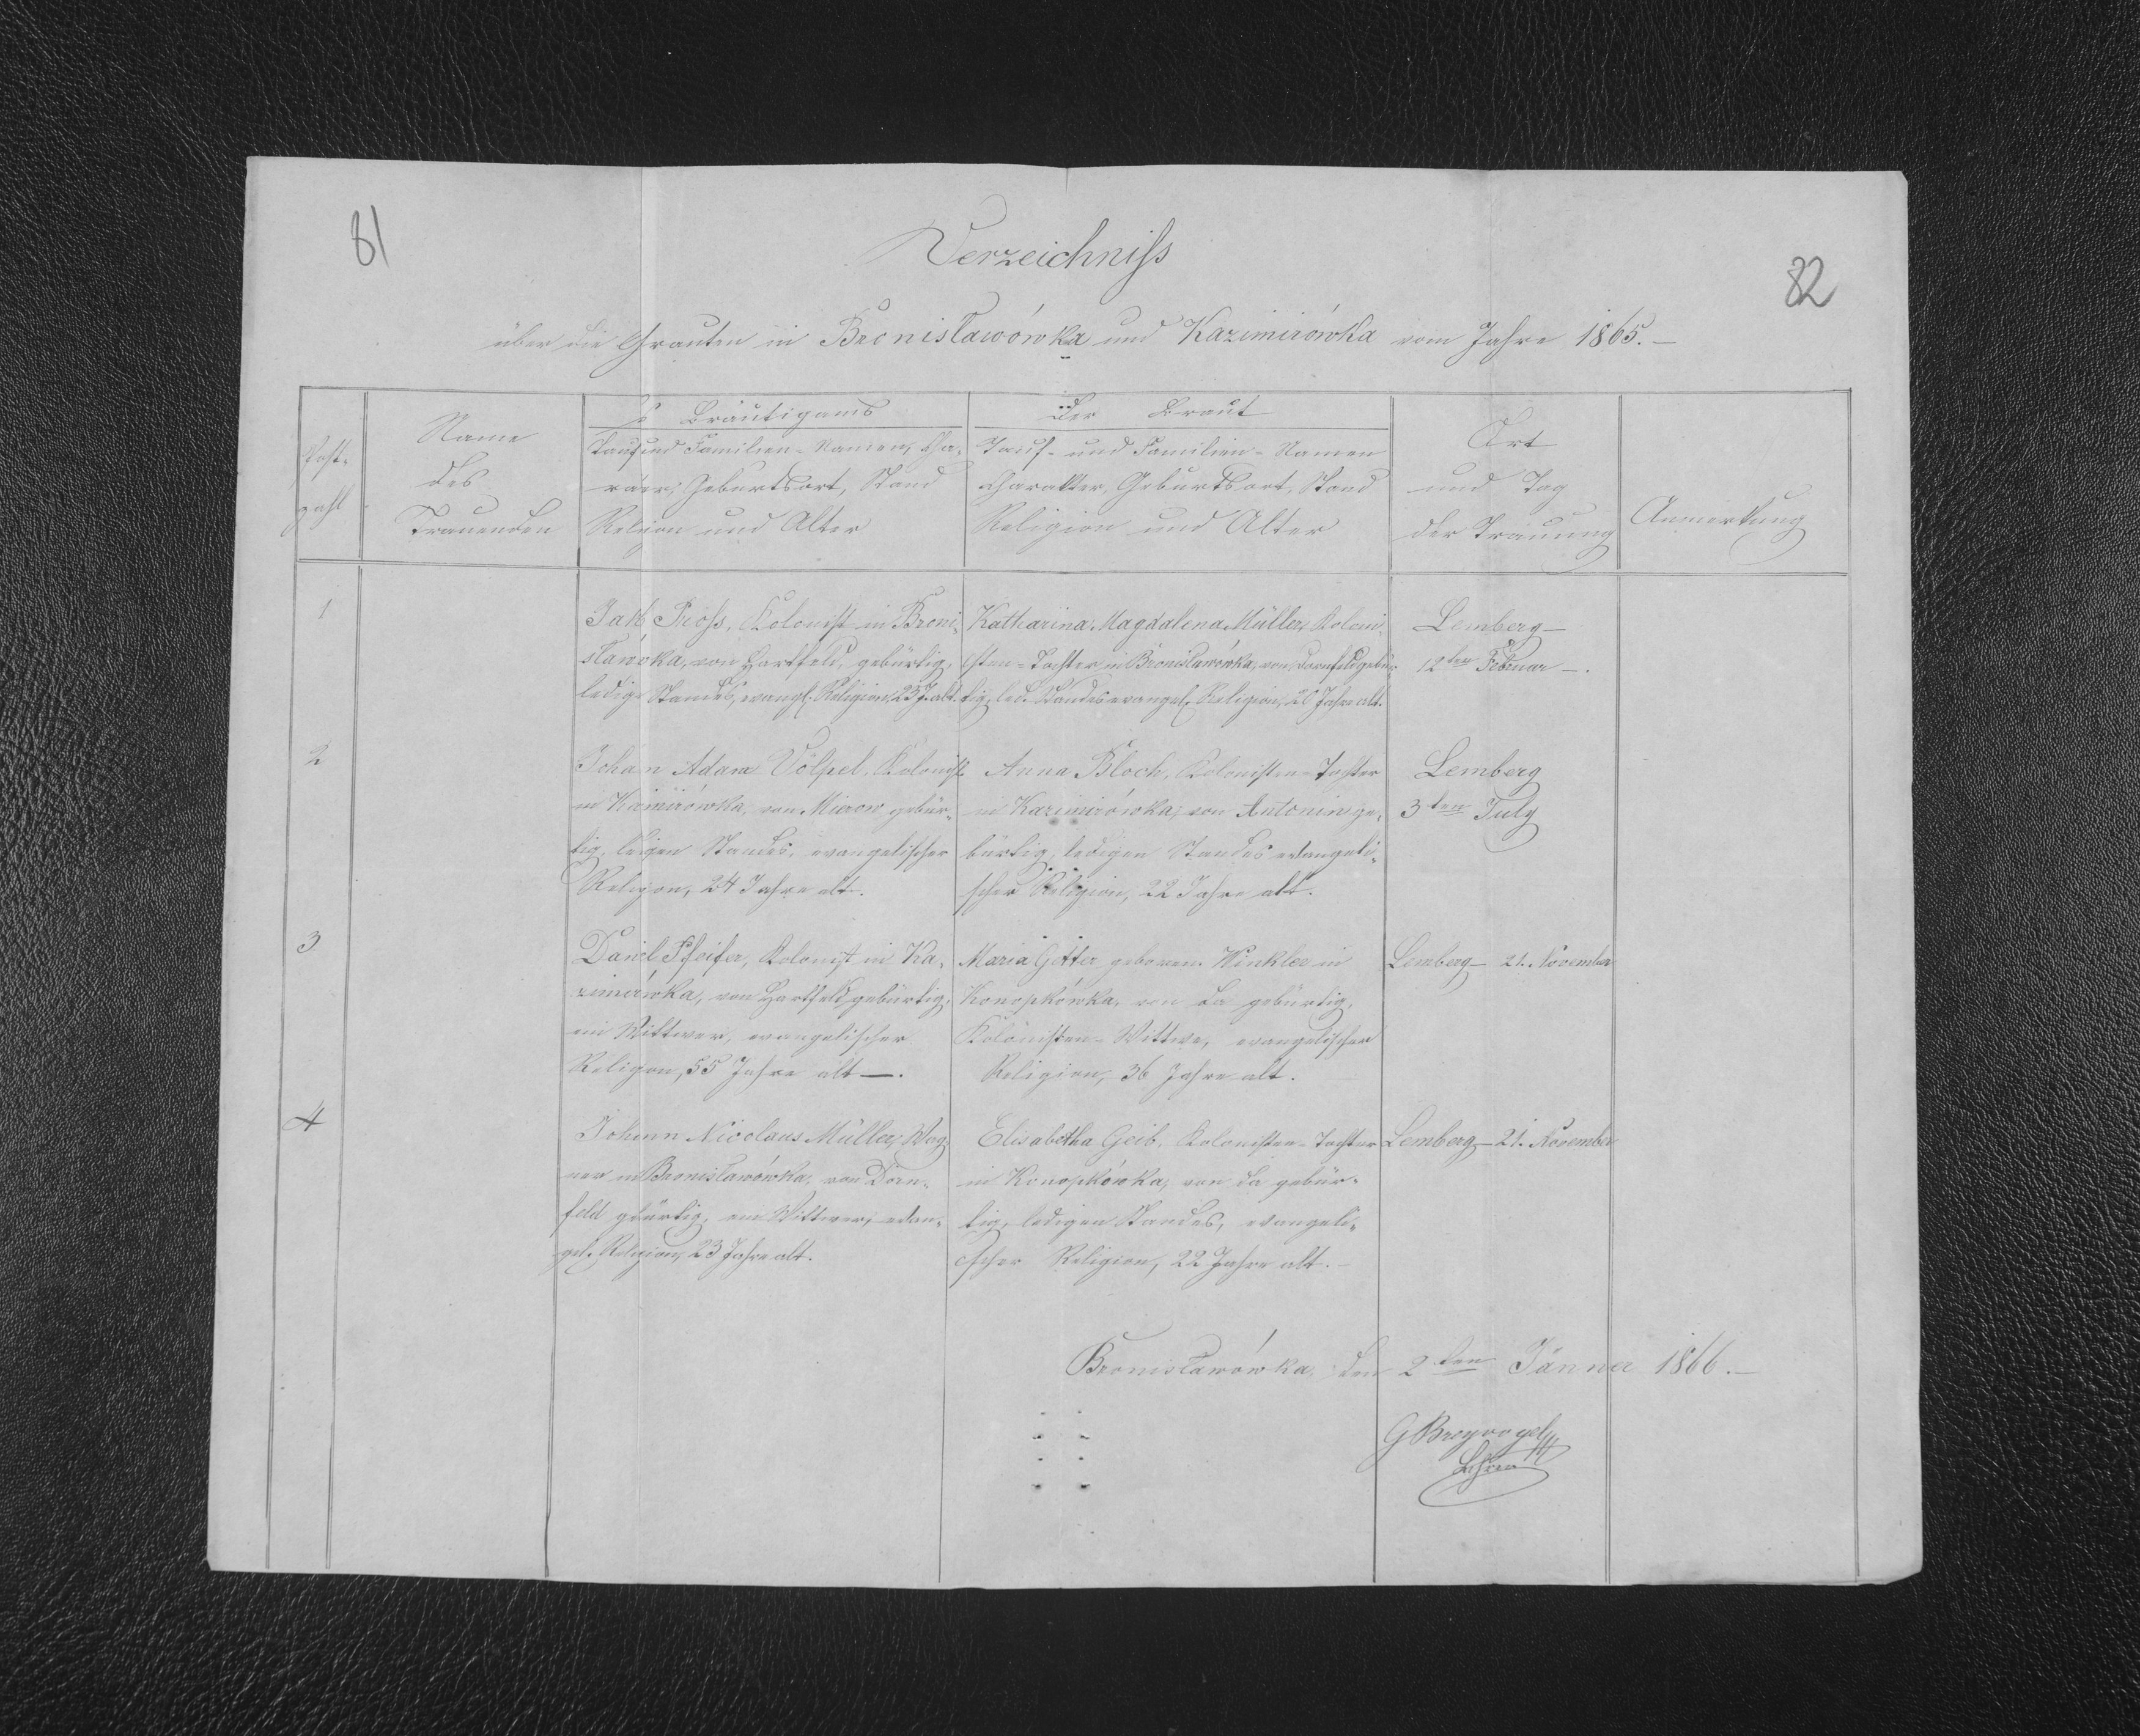 81
82
Verzeichniss
über die Getrauten in Bronisławówka und Kazimirówka vom Jahre 1865.—
Post-
zahl
Name
des
Trauenden
s Bräutigams
Tauf und Familien-Namen, Cha-
rakter, Geburtsort, Stand
Religion und Alter
Der Braut
Tauf- und Familien-Namen
Charakter, Geburtsort, Stand
Religion und Alter
Ort
und Tag
der Trauung
Anmerkung
1
Jakb Pross, Kolonist in Broni-
sławówka, von Hartfeld, gebürtig,
ledige Standes, evangl. Religion, 23 J. alt.
Katharina Magdalena Müller, Koloni-
sten-Tochter in Bronisławówka, von Dornfeld gebür-
tig, led. Standes evangel. Religion, 20 Jahre alt.
Lemberg—
12ten Februar—.
2
Johan Adam Völpel, Kolonist
in Kazimirówka, von Mierow gebür-
tig, ledigen Standes, evangelischer
Religion, 24 Jahre alt.
Anna Bloch, Kolonisten-Tochter
in Kazimirówka, von Antonin ge-
bürtig, ledigen Standes evangeli-
scher Religion, 22 Jahre alt.
Lemberg
3ten July
3
Daniel Pfeifer, Kolonist in Ka-
zimirówka, von Hartfeld gebürtig,
ein Wittwer, evangelischer
Religion, 55 Jahre alt—.
Maria Getter geboren. Winkler in
Konopkówka, von da gebürtig,
Kolonisten-Wittwe, evangelischer
Religion, 36 Jahre alt.
Lemberg— 21. November
4
Johann Nicolaus Müller, Wag-
ner in Bronisławówka, von Dorn-
feld gebürtig, ein Wittwer, evan-
gel. Religion, 23 Jahre alt.
Elisabetha Geib, Kolonisten-Tochter
in Konopkówka, von da gebür-
tig, ledigen Standes, evangeli-
scher Religion, 22 Jahre alt.—
Lemberg—21. November
Bronisławówka, den 2ten Jänner 1866.—
G Breyvogel
Lehrer